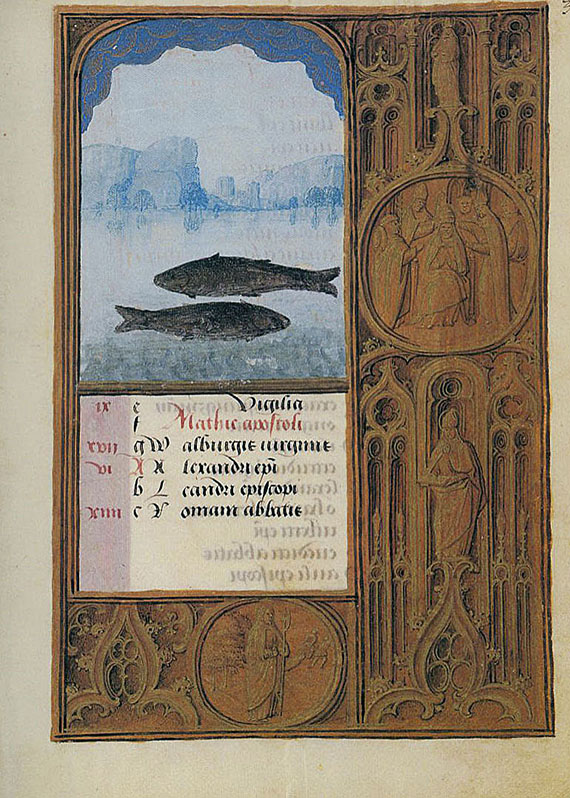 ix e Vigilia
f Mathie apostoli
xvii g Walburgis uirginis
vi A Alexandri epi
b Leandri episcopi
xiiii c Romani abbatis